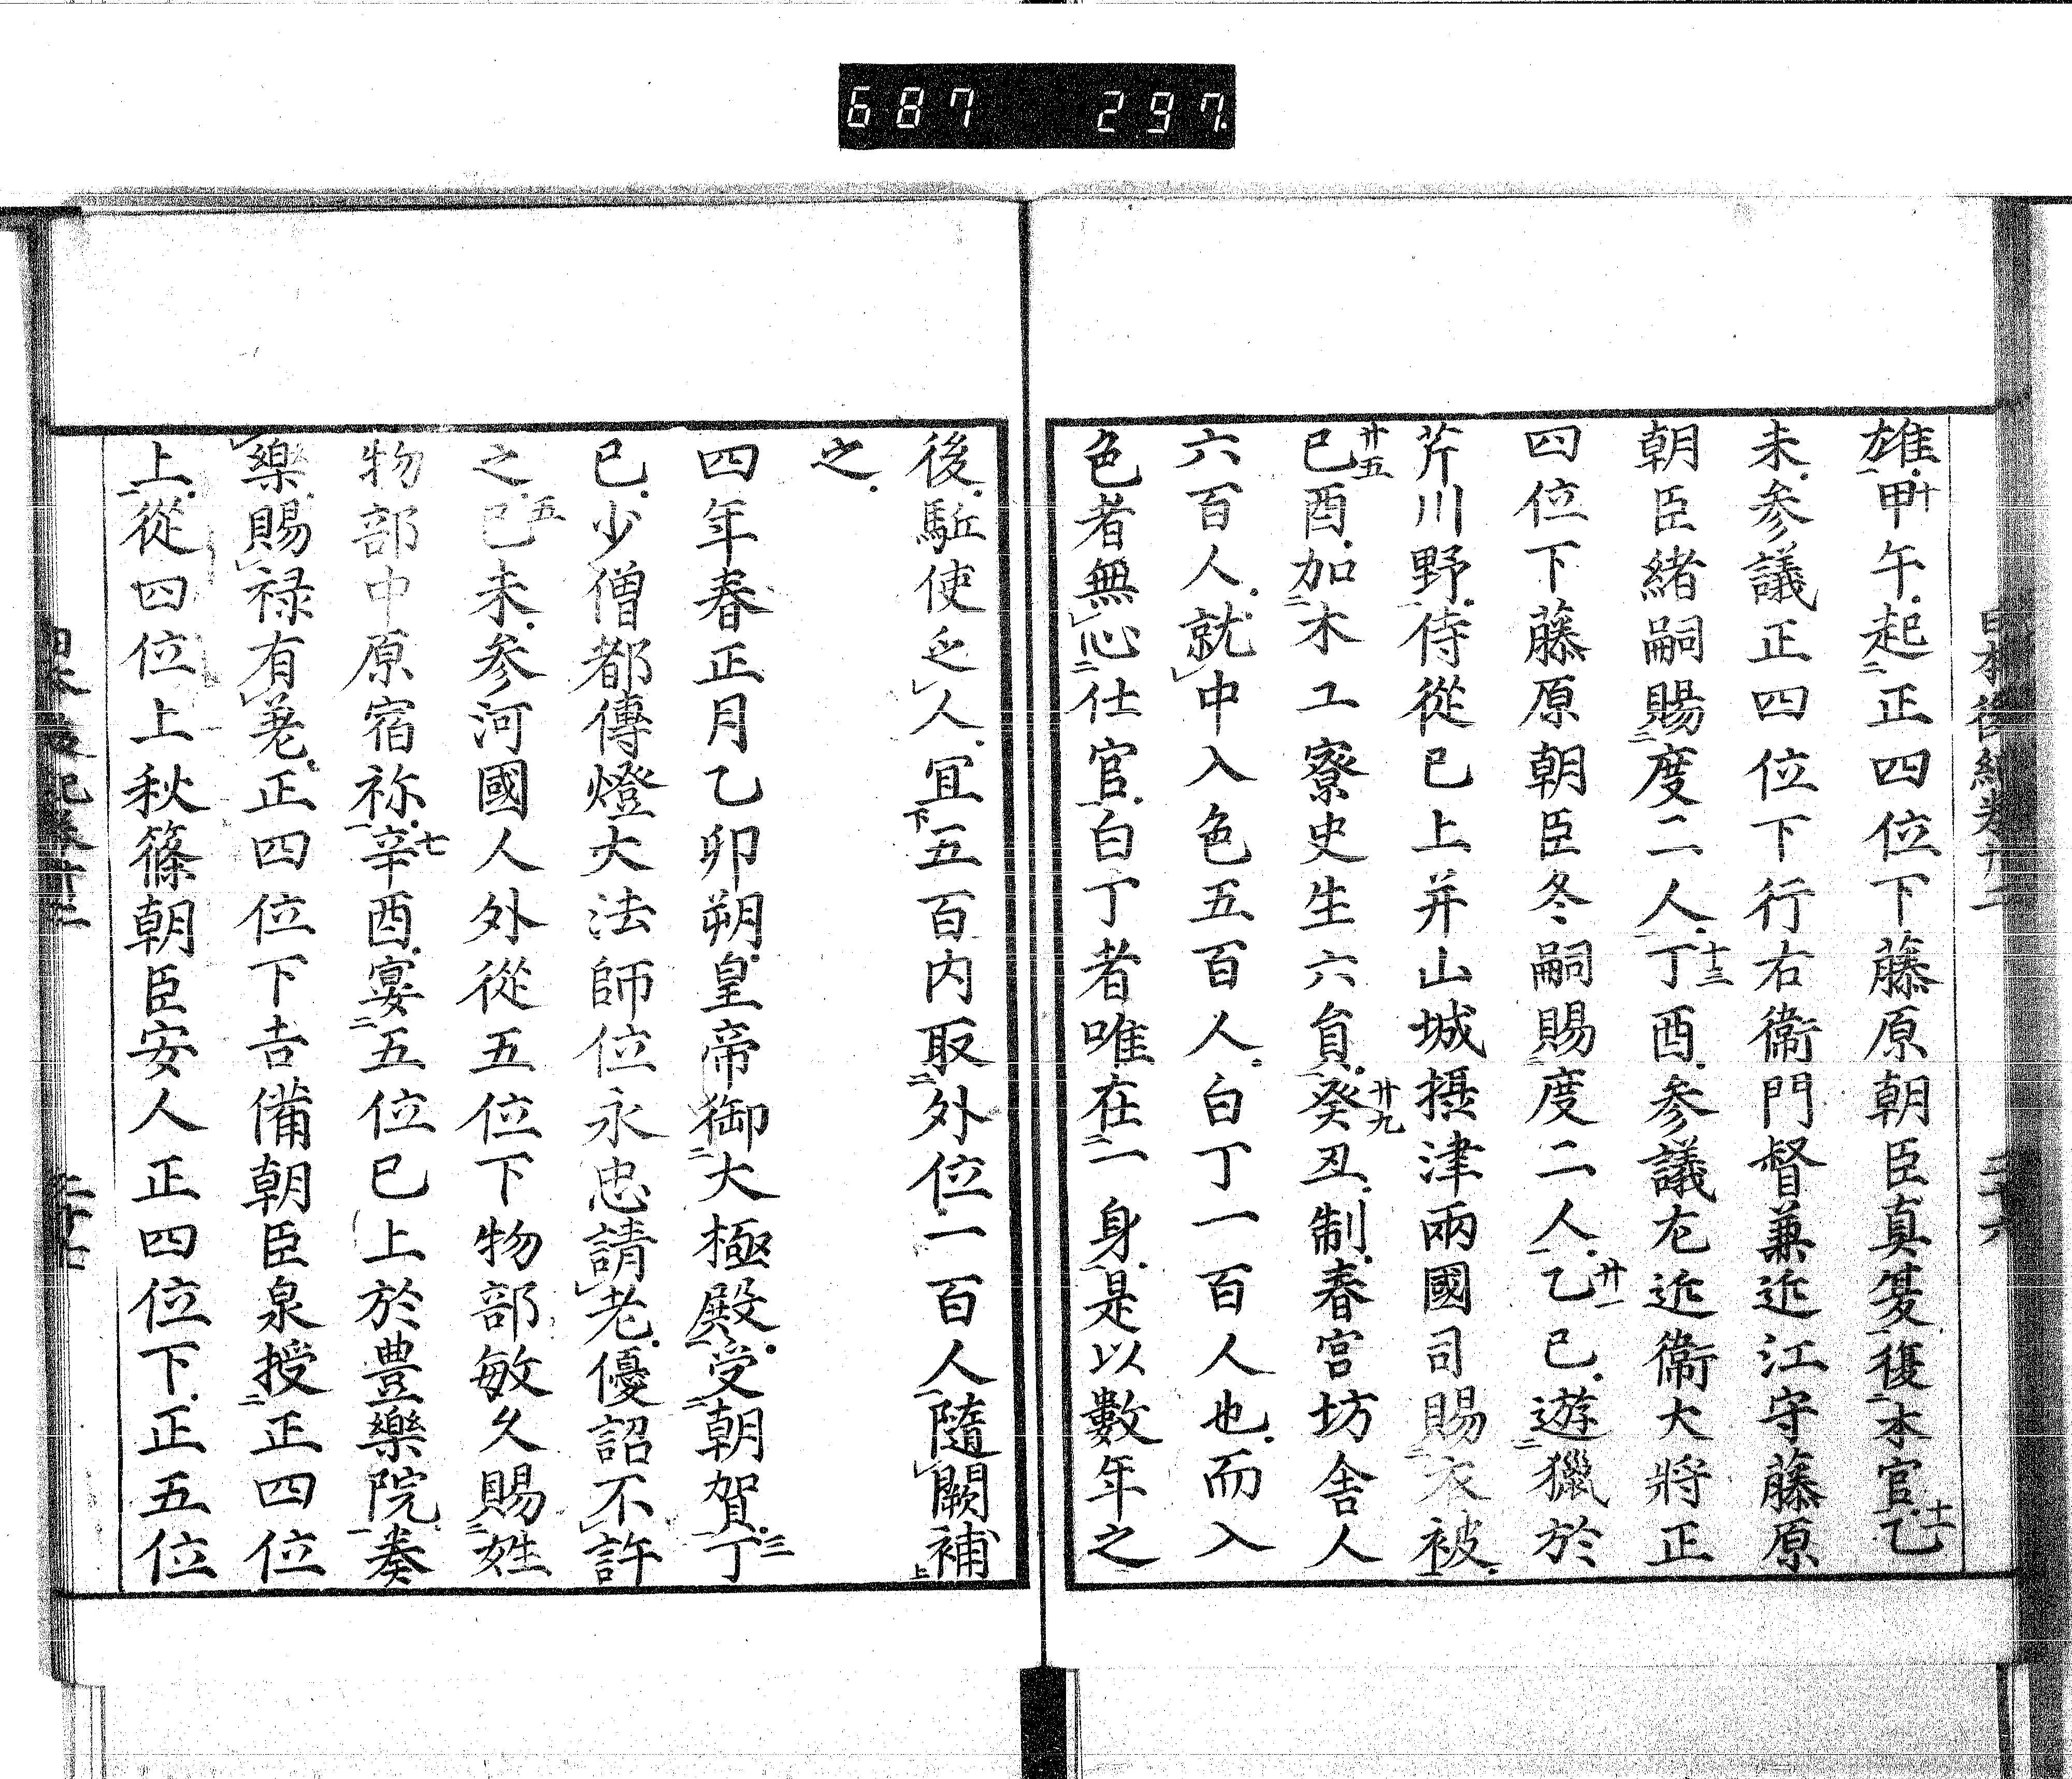 687 297.
雄甲午起正四位下藤原朝臣真夏復本官乙
未参議正四位下行右衞門督兼近江守藤原
朝臣緒嗣賜度二人丁酉参議左近衞大將正
四位下藤原朝臣冬嗣賜度二人乙巳遊獵於
芹川野侍從已上并山城攝津兩國司賜衣被
己酉加木工寮史生六員癸丑制春宮坊舎人
六百人就中入色五百人白丁一百人也而入
色者無心仕官白丁者唯在一身是以數年之
後駈使乏人冝五百内取外位一百人隨闕補
之
四年春正月乙卯朔皇帝御大極殿受朝賀丁
巳少僧都傳燈大法師位永忠請老優詔不許
之己未参河國人外從五位下物部敏久賜姓
物部中原宿祢辛酉宴五位已上於豊樂院奏
樂賜禄有差正四位下吉備朝臣泉授正四位
上從四位上秋篠朝臣安人正四位下正五位